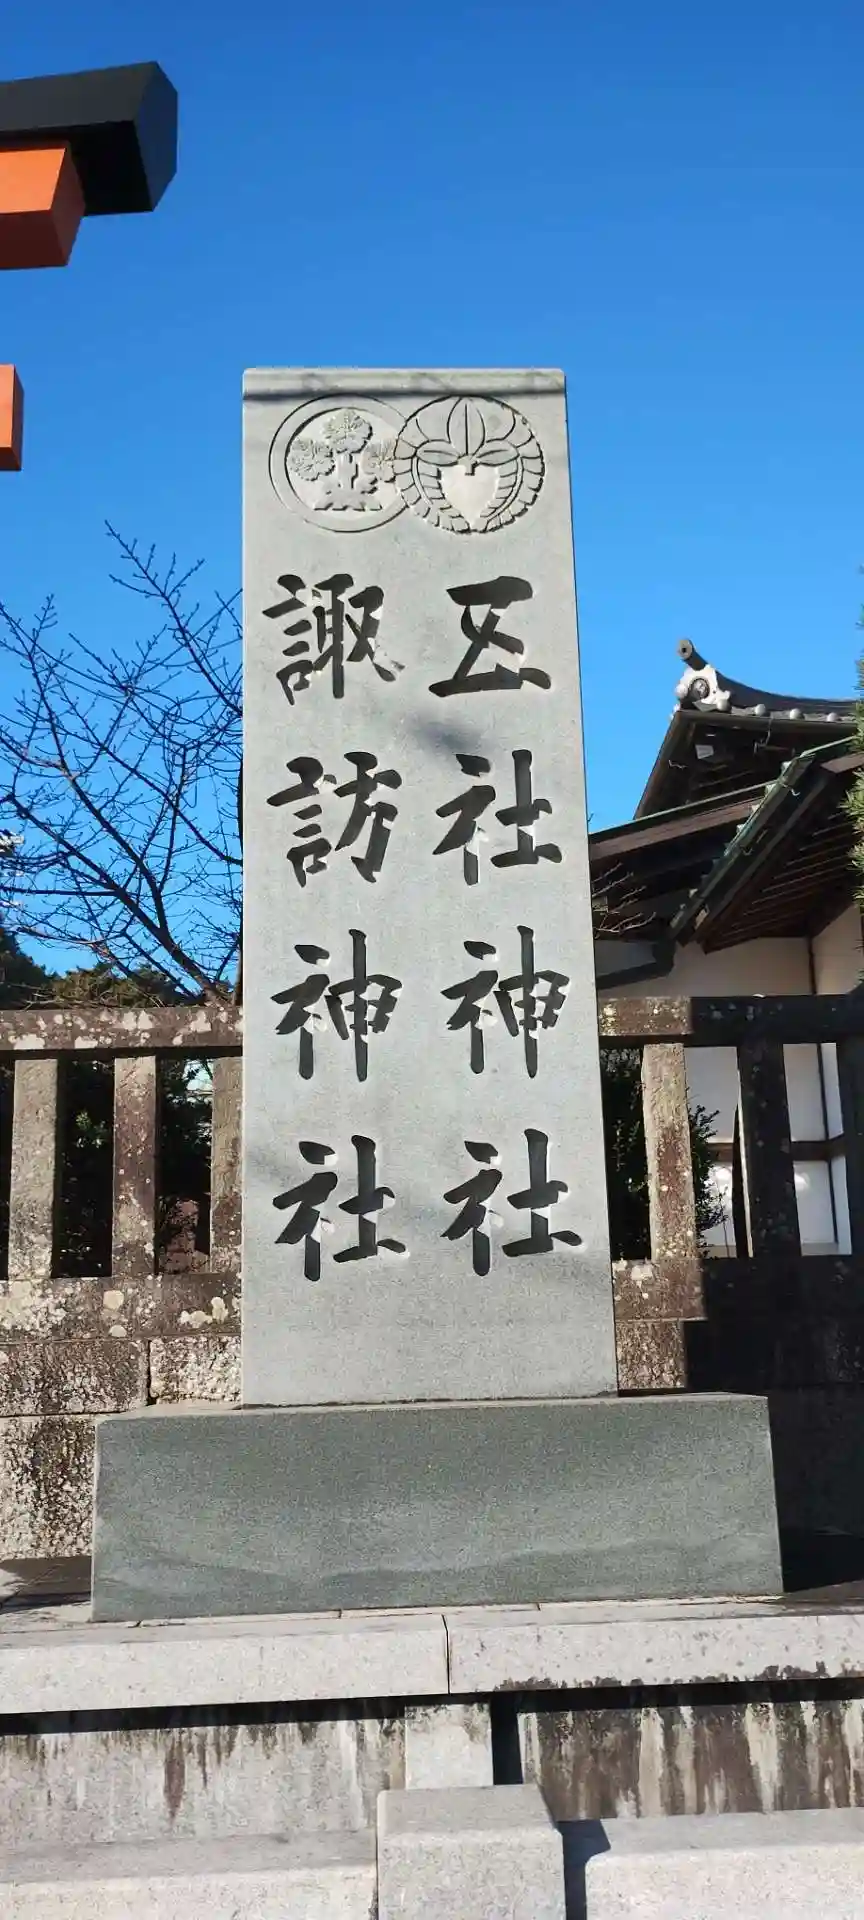 五社神社
諏訪神社